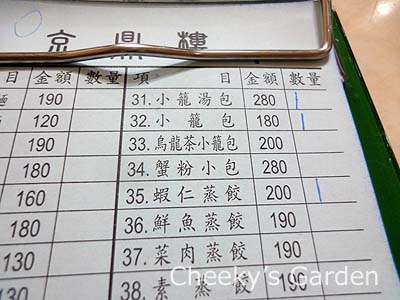 京鼎樓
金額 數量 項目 金額 數量
190 31.小籠湯包 280
120 32.小籠包 180
190 33.烏龍茶小籠包 200
180 34.蟹粉小包 280
160 35.蝦仁蒸餃 200
180 36.鮮魚蒸餃 190
130 37.菜肉蒸餃 190
130 38.素蒸餃 190
Cheeky's Garden